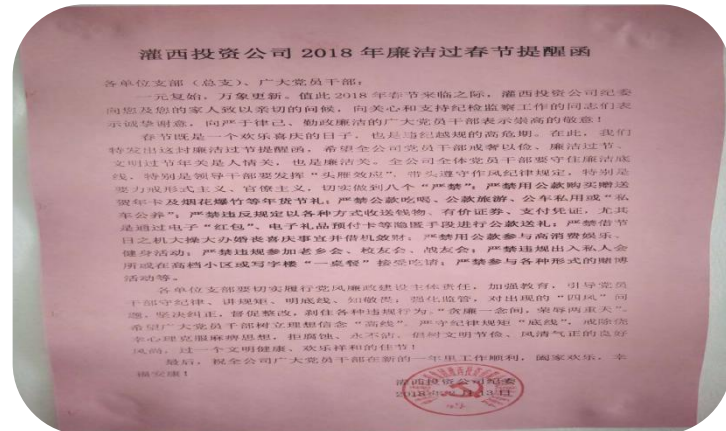 灌西投资公司 2018 年廉洁过春节提醒函
各单位支部（总支）、广大党员干部：
一元复始，万象更新。值此 2018 年春节来临之际，灌西投资公司纪委
向您及您的家人致以亲切的问候，向关心和支持纪检监察工作的同志们表
示诚挚谢意，向严于律己、勤政廉洁的广大党员干部表示崇高的敬意！
春节既是一个欢乐喜庆的日子，也是违纪越规的高危期。在此，我们
特发出这封廉洁过节提醒函，希望全公司党员干部戒奢以俭、廉洁过节、
文明过节年关是人情关，也是廉洁关。全公司全体党员干部要守住廉洁底
线，特别是领导干部要发挥“头雁效应”，带头遵守作风纪律规定，特别是
要力戒形式主义、官僚主义，切实做到八个“严禁”：严禁用公款购买赠送
贺年卡及烟花爆竹等年货节礼；严禁公款吃喝、公款旅游、公车私用或“私
车公养”；严禁违反规定以各种方式收送钱物、有价证券、支付凭证，尤其
是通过电子“红包”、电子礼品预付卡等隐匿手段进行公款送礼；严禁借节
日之机大操大办婚丧喜庆事宜并借机敛财；严禁用公款参与高消费娱乐、
健身活动；严禁违规参加老乡会、校友会、战友会；严禁违规出入私人会
所或在高档小区或写字楼“一桌餐”接受吃请；严禁参与各种形式的赌博
活动等。
各单位支部要切实履行党风廉政建设主体责任，加强教育，引导党员
干部守纪律、讲规矩、明底线、知敬畏；强化监管，对出现的“四风”问
题，坚决纠正，督促整改，刹住各种违规行为。“贪廉一念间，荣辱两重天”。
希望广大党员干部树立理想信念“高线”，严守纪律规矩“底线”，戒除侥
幸心理克服麻痹思想，拒腐蚀、永不沾，倡树文明节俭、风清气正的良好
风尚，过一个文明健康、欢乐祥和的佳节！
最后，祝全公司广大党员干部在新的一年里工作顺利，阖家欢乐，幸
福安康！
灌西投资公司纪委
2018 年